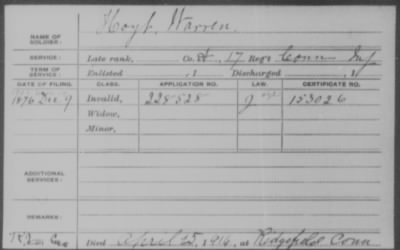 Hoyt, Warren.
NAME OF SOLDIER:
SERVICE: Late rank, Co. , 17 Reg't Conn Inf
TERM OF SERVICE: Enlisted , 1 Discharged , 1
DATE OF FILING. CLASS. APPLICATION NO. LAW. CERTIFICATE NO.
1876 Dec 9 Invalid, 228528 153026
Widow,
Minor,
ADDITIONAL SERVICES:
REMARKS:
Died April 25, 1916, at Ridgefield Conn